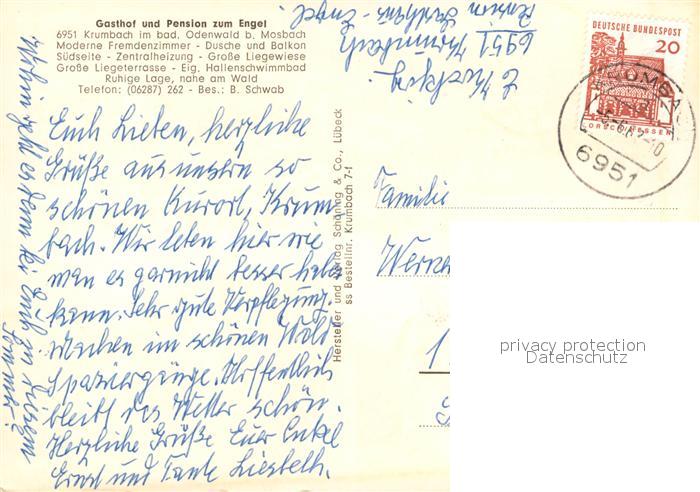 Gasthof und Pension zum Engel
6951 Krumbach im bad. Odenwald b. Mosbach
Moderne Fremdenzimmer - Dusche und Balkon
Südseite - Zentralheizung - Große Liegewiese
Große Liegeterrasse - Eig. Hallenschwimmbad
Ruhige Lage, nahe am Wald
Telefon: (06287) 262 - Bes.: B. Schwab
Euch Lieben, herzliche
Grüße aus unsern so
schönen Kurort, Krum-
bach. Wir leben hier wie
man es garnicht besser haben
kann. Sehr gute Verpflegung.
Machen im schönen Wald
Spaziergänge. Hoffentlich
bleibt das Wetter schön.
Herzliche Grüße Euer Onkel
Ernst und Tante Liesbeth.
Wohin geht es denn bei Euch in diesem
Sommer?
z. Zt.
6951 Krumbach
Pension Gasthaus Engel
Hersteller und Verlag Schöning & Co., Lübeck
ss Bestellnr. Krumbach 7-f
DEUTSCHE BUNDESPOST
20
LORSCH/HESSEN
KRUMBACH
6951
Familie
Werner
privacy protection
Datenschutz